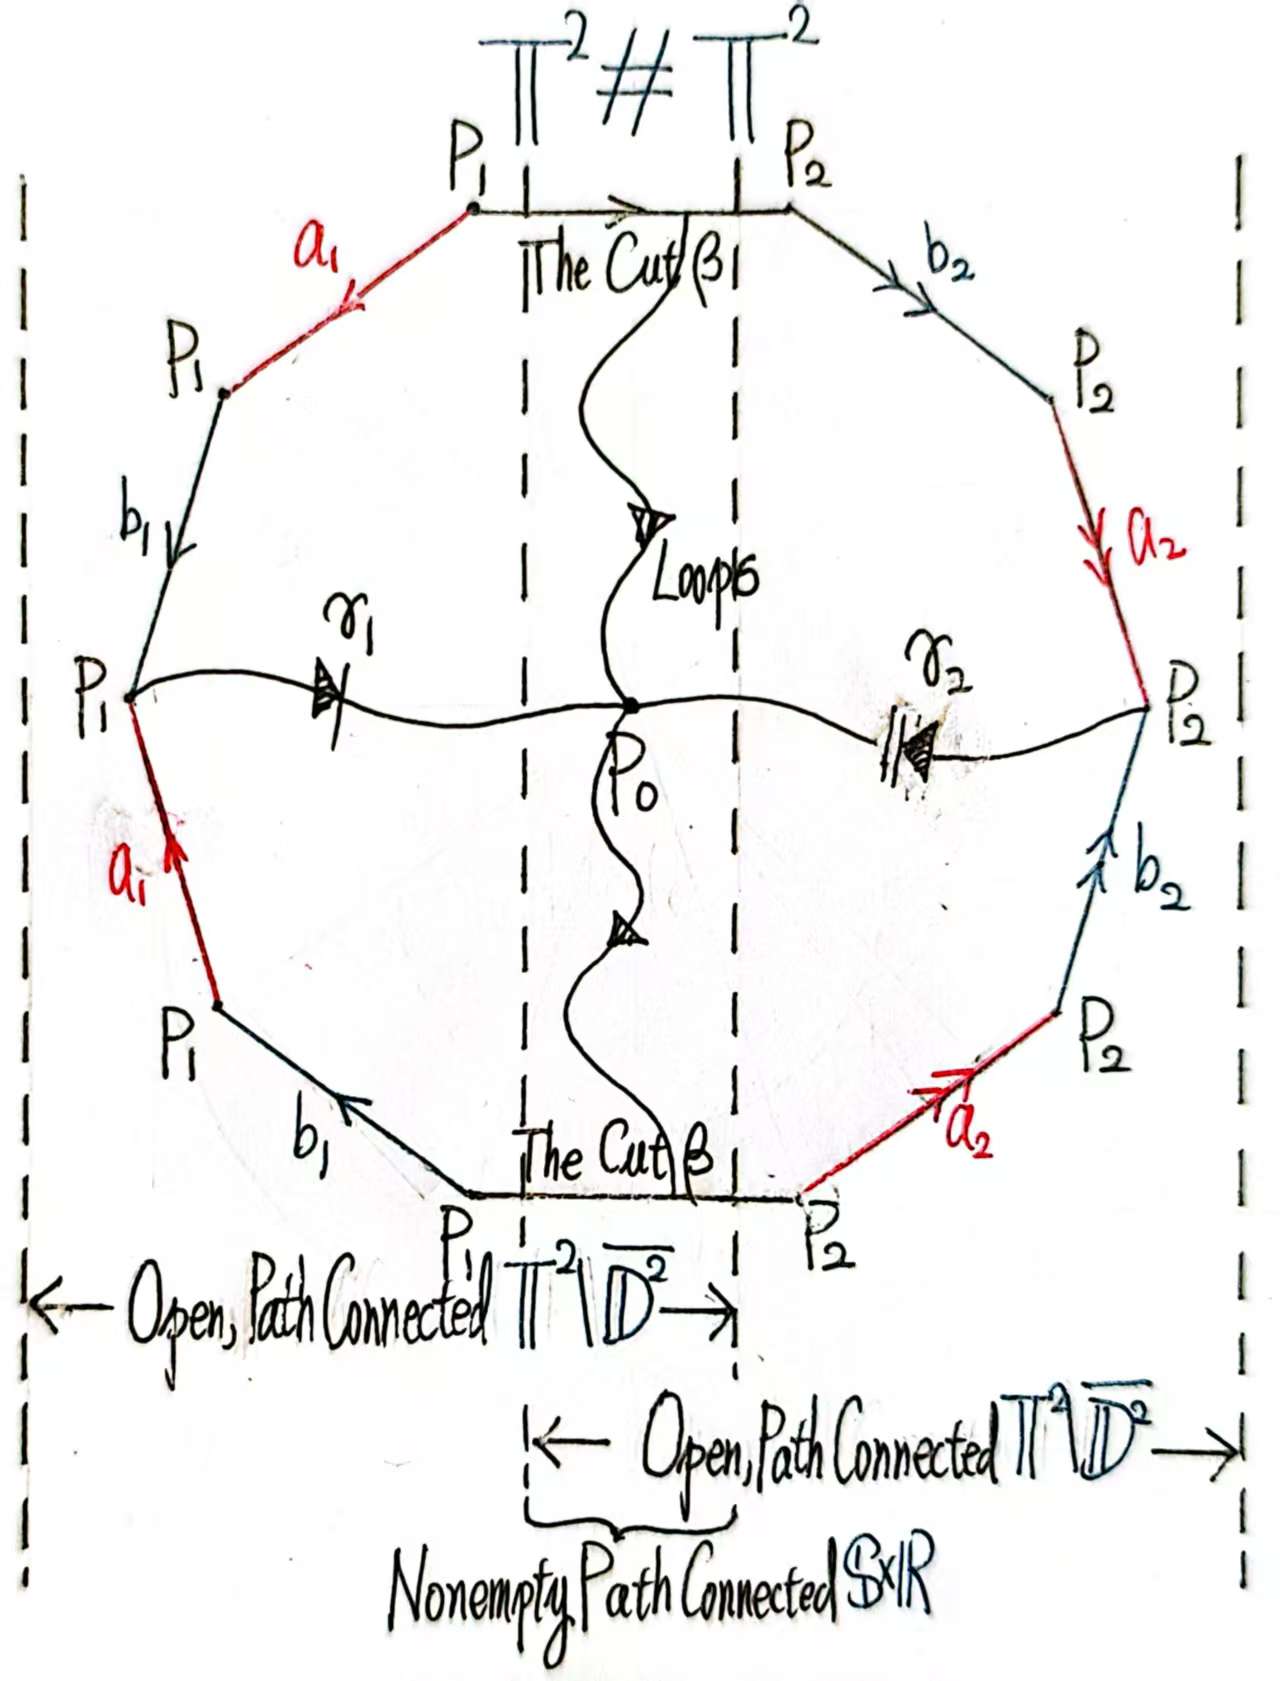 𝕋² # 𝕋²
P₁
P₂
a₁
b₂
The Cut β
P₁
P₂
b₁
a₂
Loop σ
γ₁
γ₂
P₁
P₂
P₀
a₁
b₂
P₁
P₂
b₁
The Cut β
a₂
P₁
P₂
← Open, Path Connected 𝕋²\D̅² →
← Open, Path Connected 𝕋²\D̅² →
Nonempty Path Connected 𝕊×ℝ